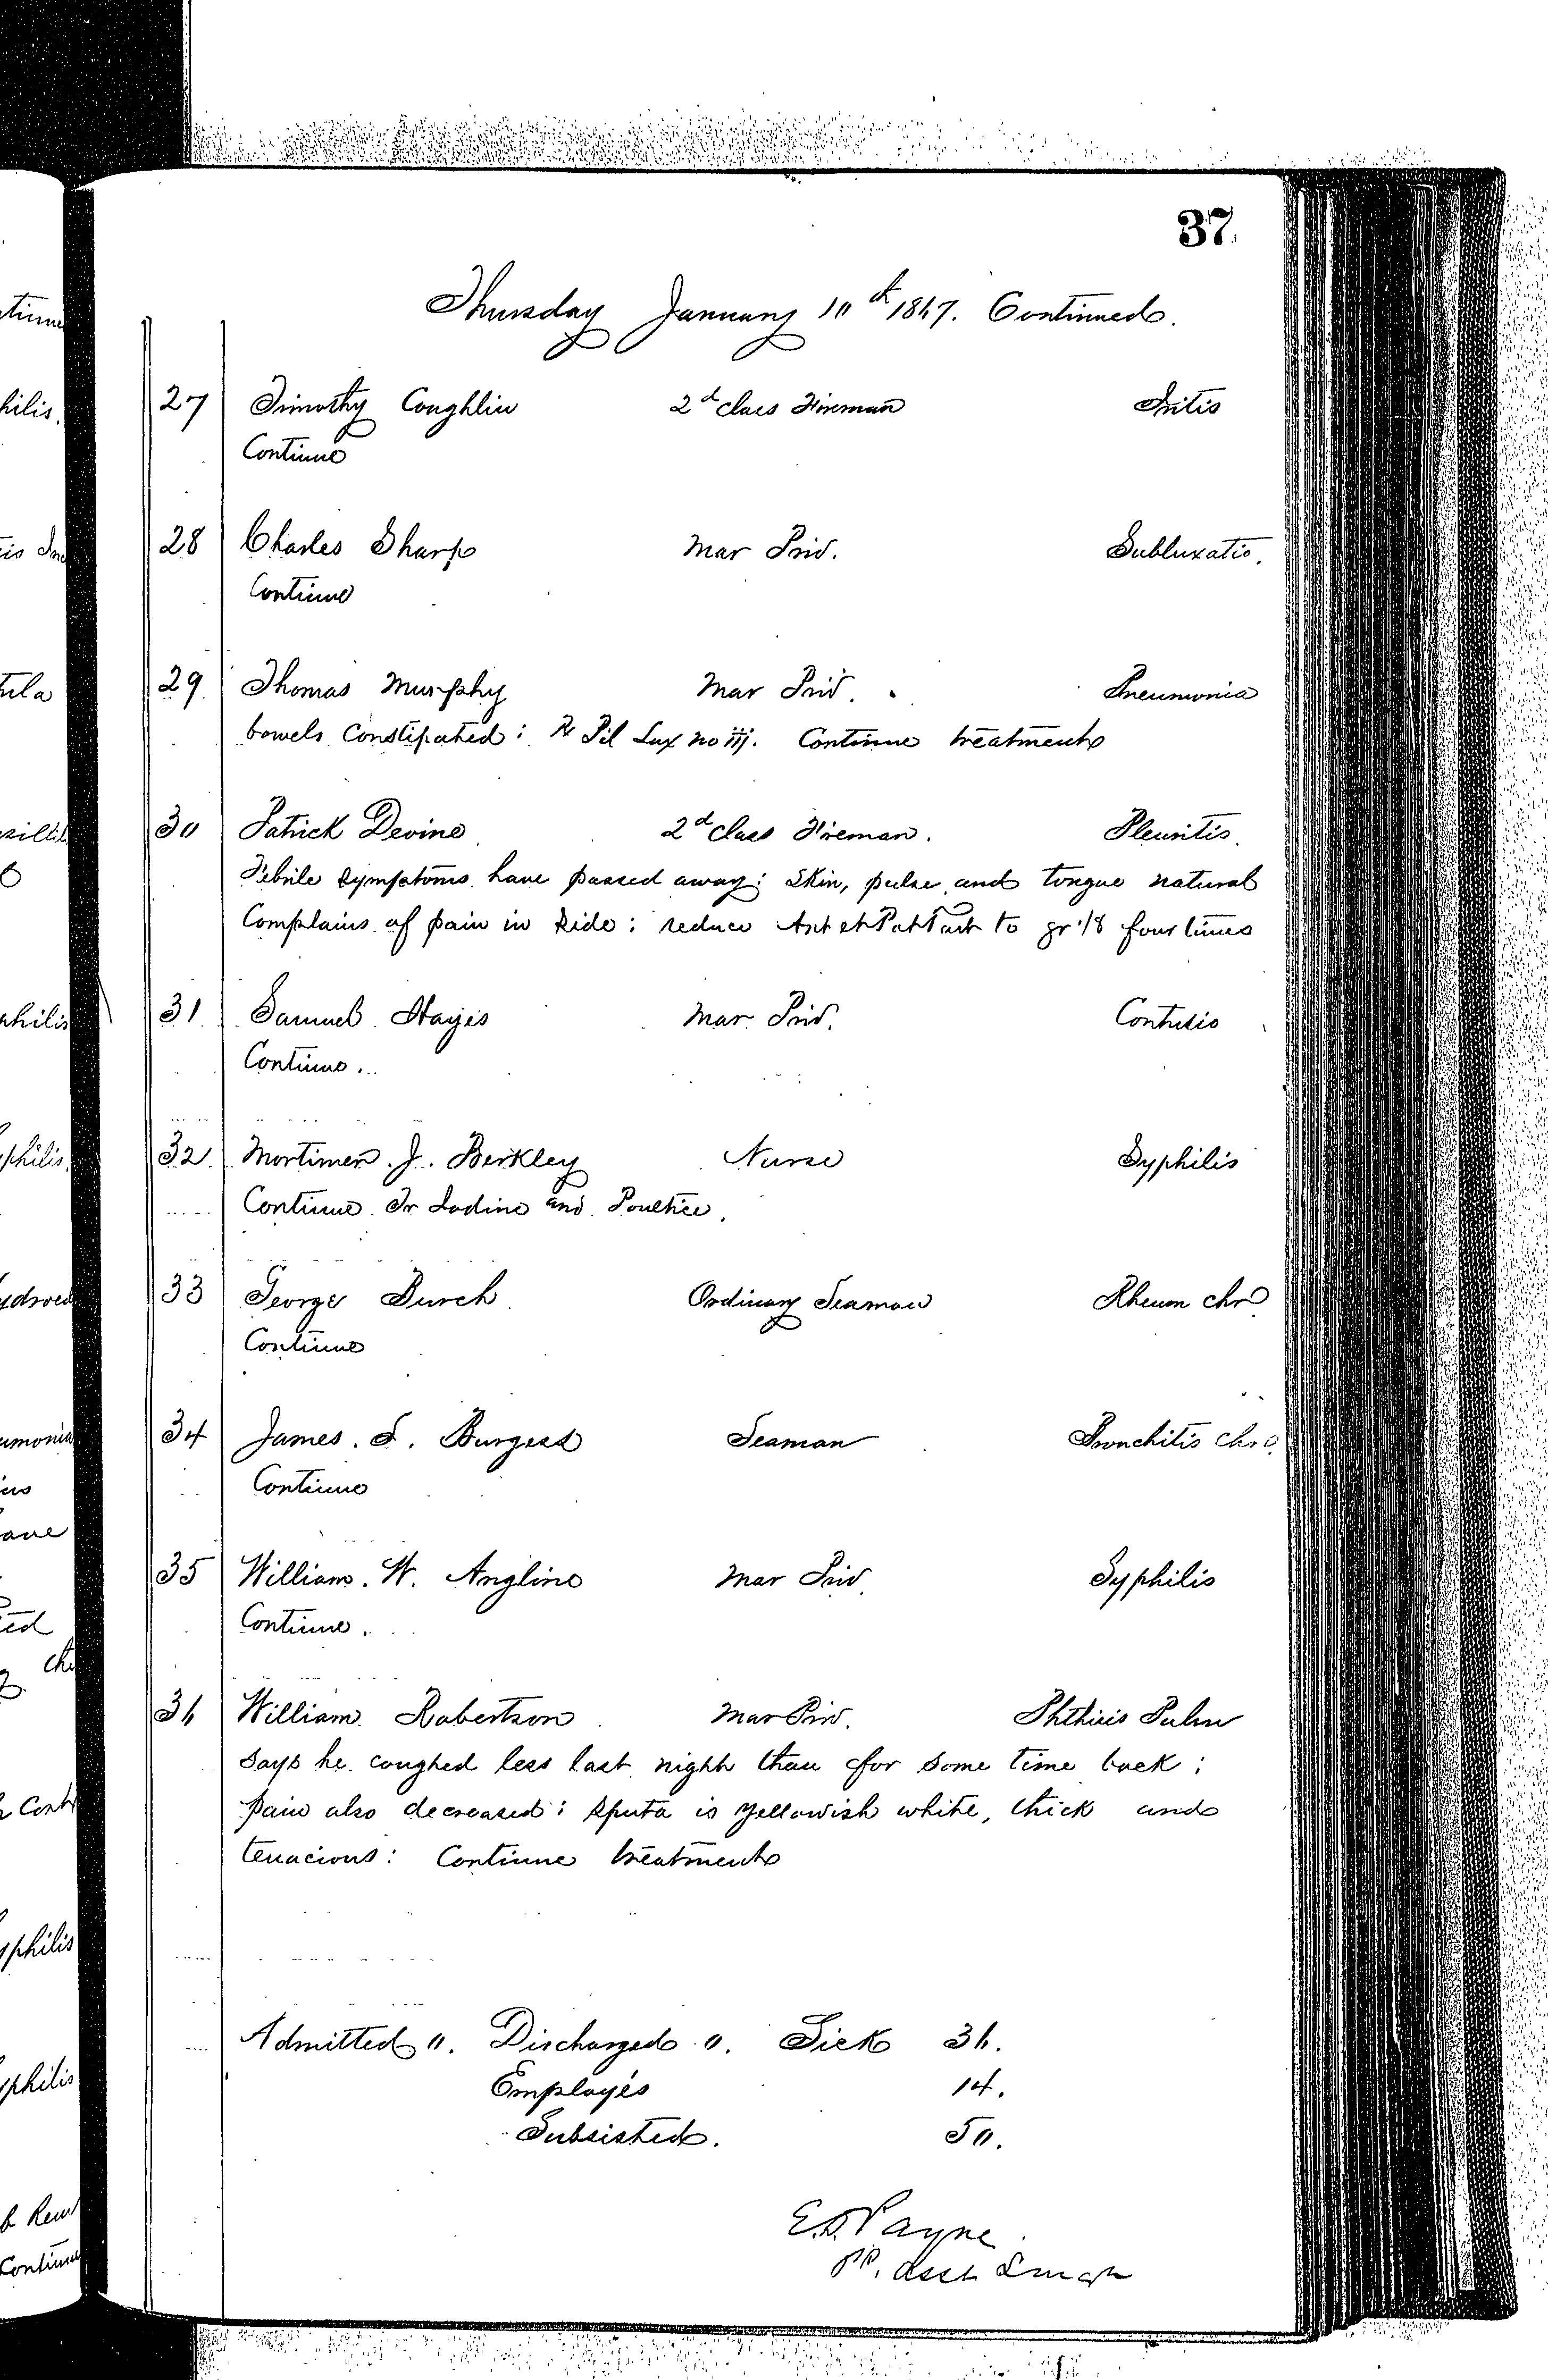 37
Thursday January 10th 1867. Continued.
27 Timothy Coughlin 2d class Fireman Iritis
Continue
28 Charles Sharp Mar Priv. Subluxatio.
Continue
29 Thomas Murphy Mar Priv. Pneumonia
bowels constipated: ℞ Pil Lax no iij. Continue treatment
30 Patrick Devine 2d class Fireman. Pleuritis.
Febrile symptoms have passed away: Skin, pulse and tongue natural
Complains of pain in side: reduce Ant et Pot Tart to gr 1/8 four times
31 Samuel Hayes Mar. Priv. Contusio
Continue.
32 Mortimer. J. Berkley Nurse Syphilis
Continue Tr Iodine and Poultice.
33 George Burch Ordinary Seaman Rheum chro
Continue
34 James. S. Burgess Seaman Bronchitis chro.
Continue
35 William. W. Angline Mar Priv. Syphilis
Continue.
36 William Robertson Mar Priv. Phthisis Pulm
Says he coughed less last night than for some time back:
pain also decreased: Sputa is yellowish white, thick and
tenacious: Continue treatment
Admitted 0. Discharged 0. Sick 36.
Employés 14.
Subsisted. 50.
E.D. Payne
PP. Asst Surg